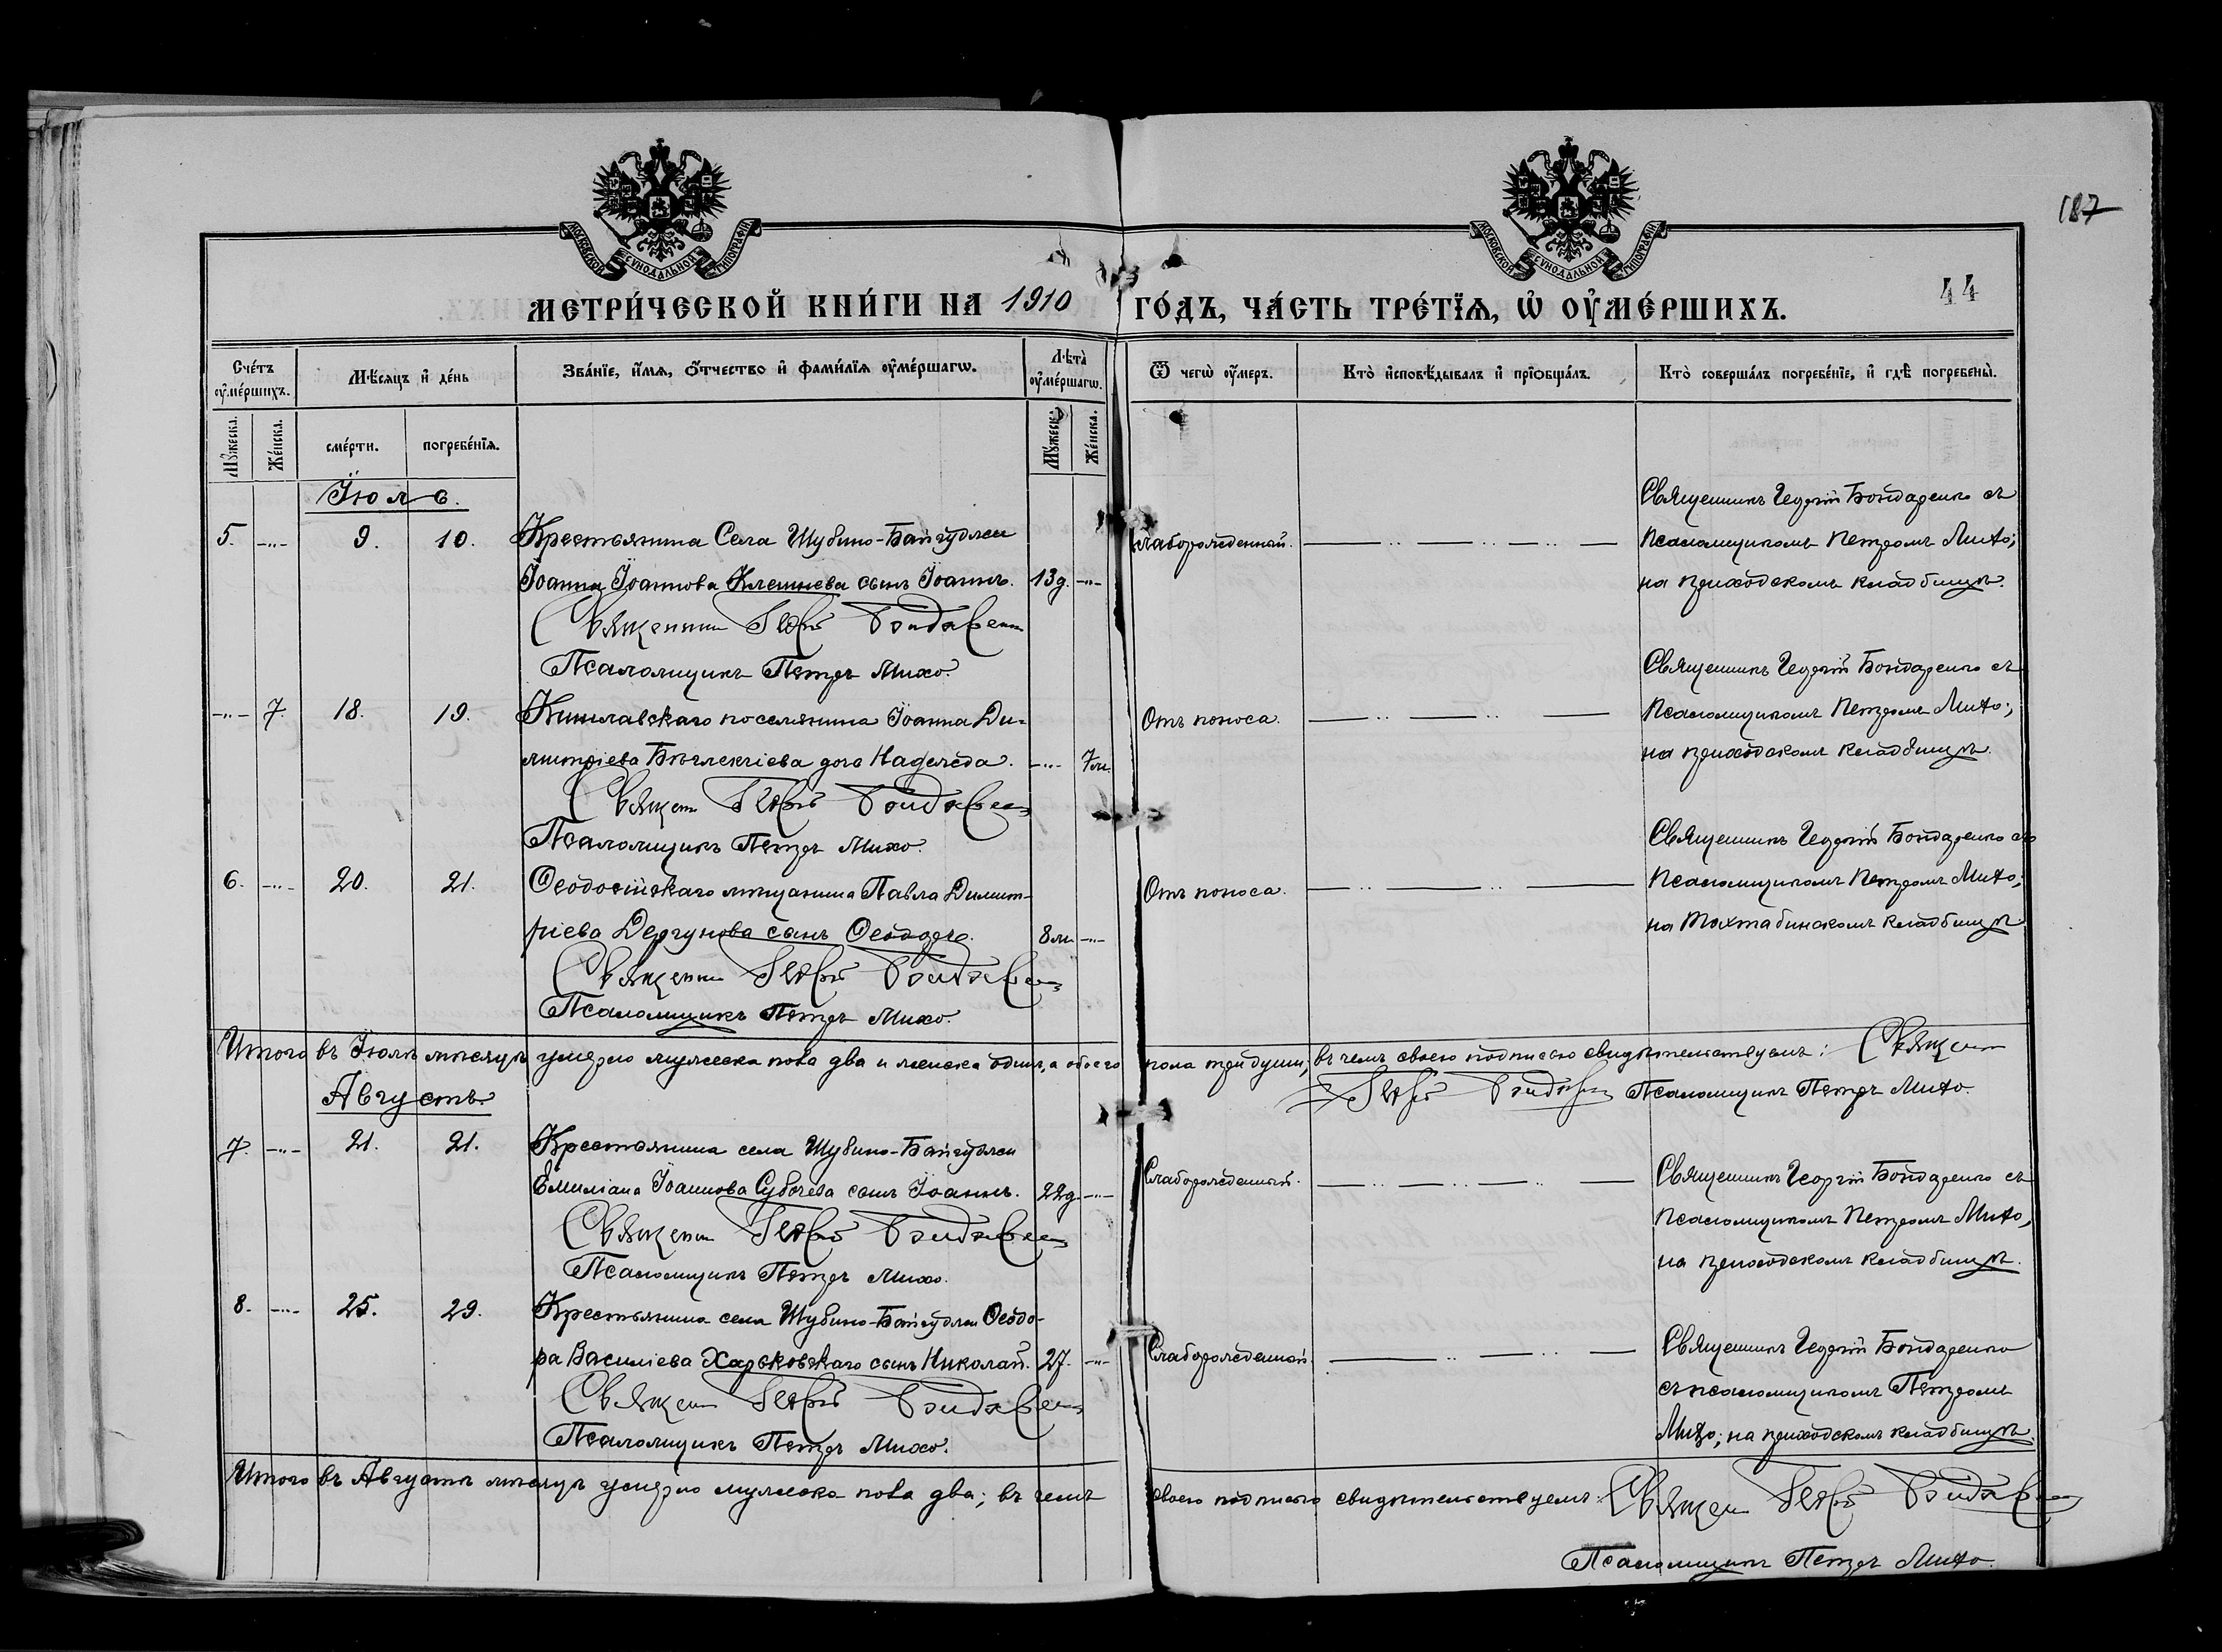 187
44
МОСКОВСКОЙ СѴНОДАЛЬНОЙ ТИПОГРАФІИ
МОСКОВСКОЙ СѴНОДАЛЬНОЙ ТИПОГРАФІИ
МЕТРИ́ЧЕСКОЙ КНИ́ГИ НА 1910 ГО́ДЪ, ЧА́СТЬ ТРЕ́ТЇѦ, Ѡ҆ ОУ҆МЕ́РШИХЪ.
Сче́тъ оу҆ме́ршихъ.
Мѣ́сяцъ и҆ де́нь
Зва́нїе, и҆́мѧ, ѻ҆́тчество и҆ фами́лїѧ оу҆ме́ршагѡ.
Лѣта̀ оу҆ме́ршагѡ.
Ѿ чегѡ̀ оу҆́меръ.
Кто̀ и҆сповѣ́дывалъ и҆ прїобща́лъ.
Кто̀ соверша́лъ погребе́нїе, и҆ гдѣ̀ погребены̀.
Мꙋ́жеска. Же́нска. сме́рти. погребе́нїѧ. Мꙋ́жеска. Же́нска.
Іюль.
5. -„- 9. 10. Крестьянина Села Шубино-Байгуджи
Іоанна Іоаннова Клешнева сынъ Іоаннъ. 13 д. -„-
Священник Георгій Бондаренко
Псаломщикъ Петръ Михо.
Слаборожденный.
Священникъ Георгій Бондаренко съ
псаломщикомъ Петромъ Михо;
на приходскомъ кладбищѣ.
-„- 7. 18. 19. Кишлавскаго поселянина Іоанна Ди-
митріева дочь Надежда. -„- 7 м.
Священ Георгій Бондаренко
Псаломщикъ Петръ Михо.
Отъ поноса.
Священникъ Георгій Бондаренко съ
псаломщикомъ Петромъ Михо;
на приходскомъ кладбищѣ.
6. -„- 20. 21. Ѳеодосійскаго мѣщанина Павла Димит-
ріева Дергунова сынъ Ѳеодоръ. 8 м. -„-
Священник Георгій Бондаренко
Псаломщикъ Петръ Михо.
Отъ поноса.
Священникъ Георгій Бондаренко съ
псаломщикомъ Петромъ Михо;
на Тохтабинскомъ кладбищѣ.
Итого въ Іюлѣ мѣсяцѣ умерло мужеска пола два и женска одинъ, а обоего пола три души; въ чемъ своею подписью свидѣтельствуемъ: Священ
Георгій Бондаренко Псаломщикъ Петръ Михо.
Августъ.
7. -„- 21. 21. Крестьянина села Шубино-Байгуджи
Емиліана Іоаннова Субочева сынъ Іоаннъ. 22 д. -„-
Священник Георгій Бондаренко
Псаломщикъ Петръ Михо.
Слаборожденный.
Священникъ Георгій Бондаренко съ
псаломщикомъ Петромъ Михо,
на приходскомъ кладбищѣ.
8. -„- 25. 29. Крестьянина села Шубино-Байгуджи Ѳеодо-
ра Василіева Харьковскаго сынъ Николай. 27. -„-
Священ Георгій Бондаренко
Псаломщикъ Петръ Михо.
Слаборожденный.
Священникъ Георгій Бондаренко
съ псаломщикомъ Петромъ
Михо; на приходскомъ кладбищѣ.
Итого въ Августѣ мѣсяцѣ умерло мужеска пола два; въ чемъ своею подписью свидѣтельствуемъ: Священ Георгій Бондаренко
Псаломщикъ Петръ Михо.